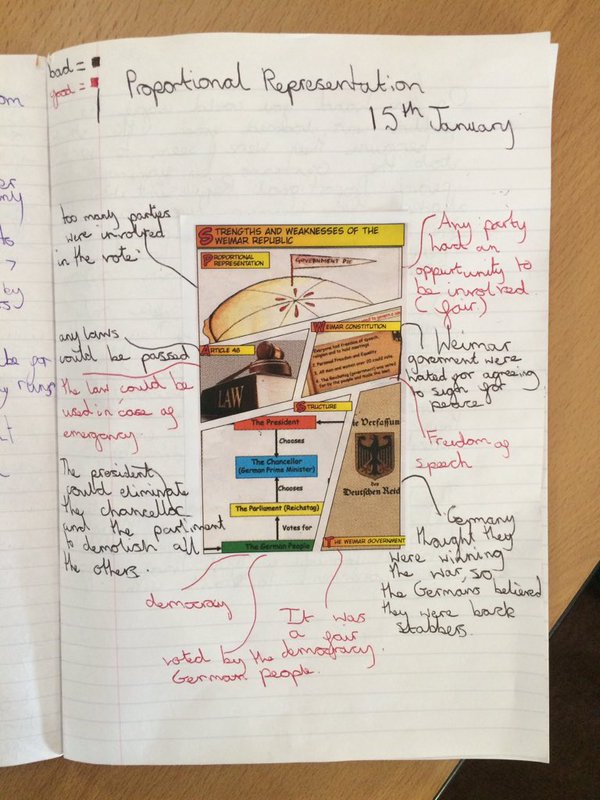 bad =
good =
Proportional Representation
15th January
too many parties
were involved
in the vote
any laws
could be passed
the law could be
used in case of
emergency.
The president
could eliminate
the chancellor
and the parliment
to demolish all
the others.
STRENGTHS AND WEAKNESSES OF THE
WEIMAR REPUBLIC
PROPORTIONAL
REPRESENTATION
GOVERNMENT PIE
ARTICLE 48
LAW
WEIMAR CONSTITUTION
Everyone had freedom of speech,
religion and to hold meetings
2. Personal Freedom and Equality
3. All men and women over 20 could vote.
4. The Reichstag (government) was voted
for by the people and made the laws
STRUCTURE
The President
Chooses
The Chancellor
(German Prime Minister)
Chooses
The Parliament (Reichstag)
Votes for
The German People
ie Verfassun
des
Deutschen Reic
THE WEIMAR GOVERNMENT
Any party
had an
opportunity to
be involved
(fair)
Weimar
goverment were
hated for agreeing
to sign for
peace
Freedom of
speech
Germany
thought they
were winning
the war, so
the Germans believed
they were back
stabbers.
democracy
voted by the
German people.
It was
a fair
democracy.